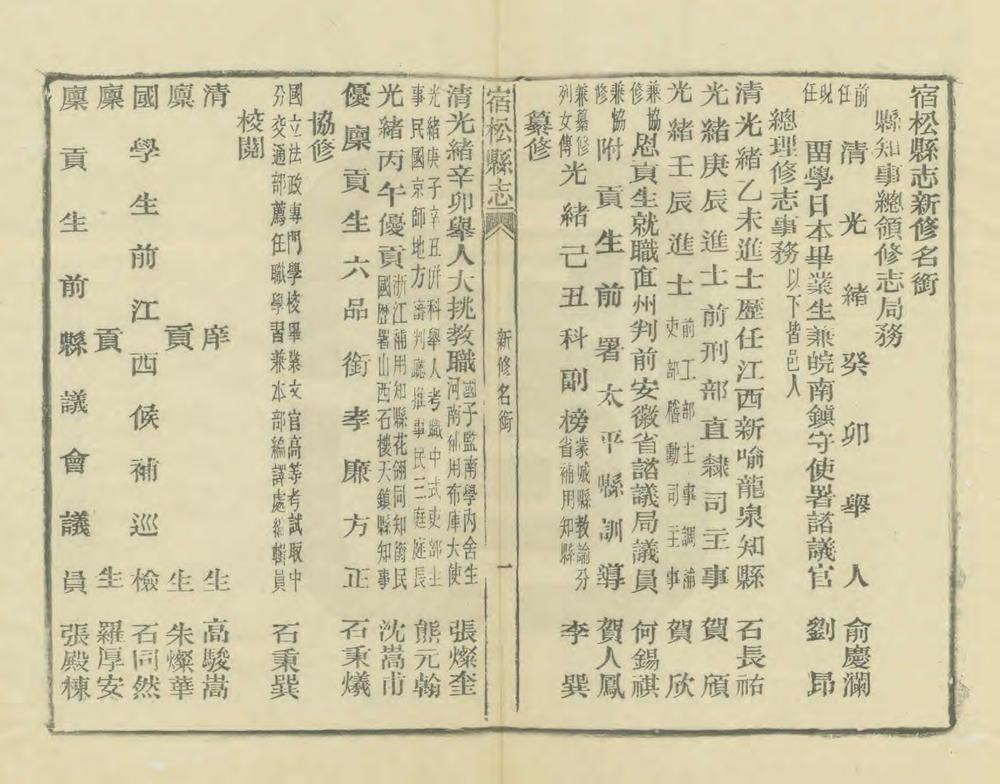 宿松縣志新修名銜
縣知事總領修志局務
前任 清光緒癸卯舉人 俞慶瀾
現任 畱學日本畢業生兼皖南鎮守使署諮議官 劉昂
總理修志事務 以下皆邑人
清光緒乙未進士歷任江西新喻龍泉知縣 石長祐
光緒庚辰進士前刑部直隸司主事 賀頎
光緒壬辰進士 前工部主事調補吏部稽勳司主事 賀欣
兼協修 恩貢生就職直州判前安徽省諮議局議員 何錫祺
兼協修 附貢生前署太平縣訓導 賀人鳳
兼纂修列女傳 光緒己丑科副榜 蒙城縣教諭分省補用知縣 李巽
纂修
宿松縣志 新修名銜 一
清光緒辛卯舉人大挑教職 國子監南學內舍生河南補用布庫大使 張燦奎
光緒庚子辛丑併科舉人考職中式吏部主事民國京師地方審判廳推事民三庭庭長 熊元翰
光緒丙午優貢 浙江補用知縣花翎同知銜民國歷署山西石樓天鎮縣知事 沈嵩甫
優廩貢生六品銜孝廉方正 石秉爔
協修
國立法政專門學校畢業文官高等考試取中分交通部薦任職學習兼本部編譯處編輯員 石秉巽
校閱
清庠生 高駿嵩
廩貢生 朱燦華
國學生前江西候補巡檢 石同然
廩貢生 羅厚安
廩貢生前縣議會議員 張殿棟